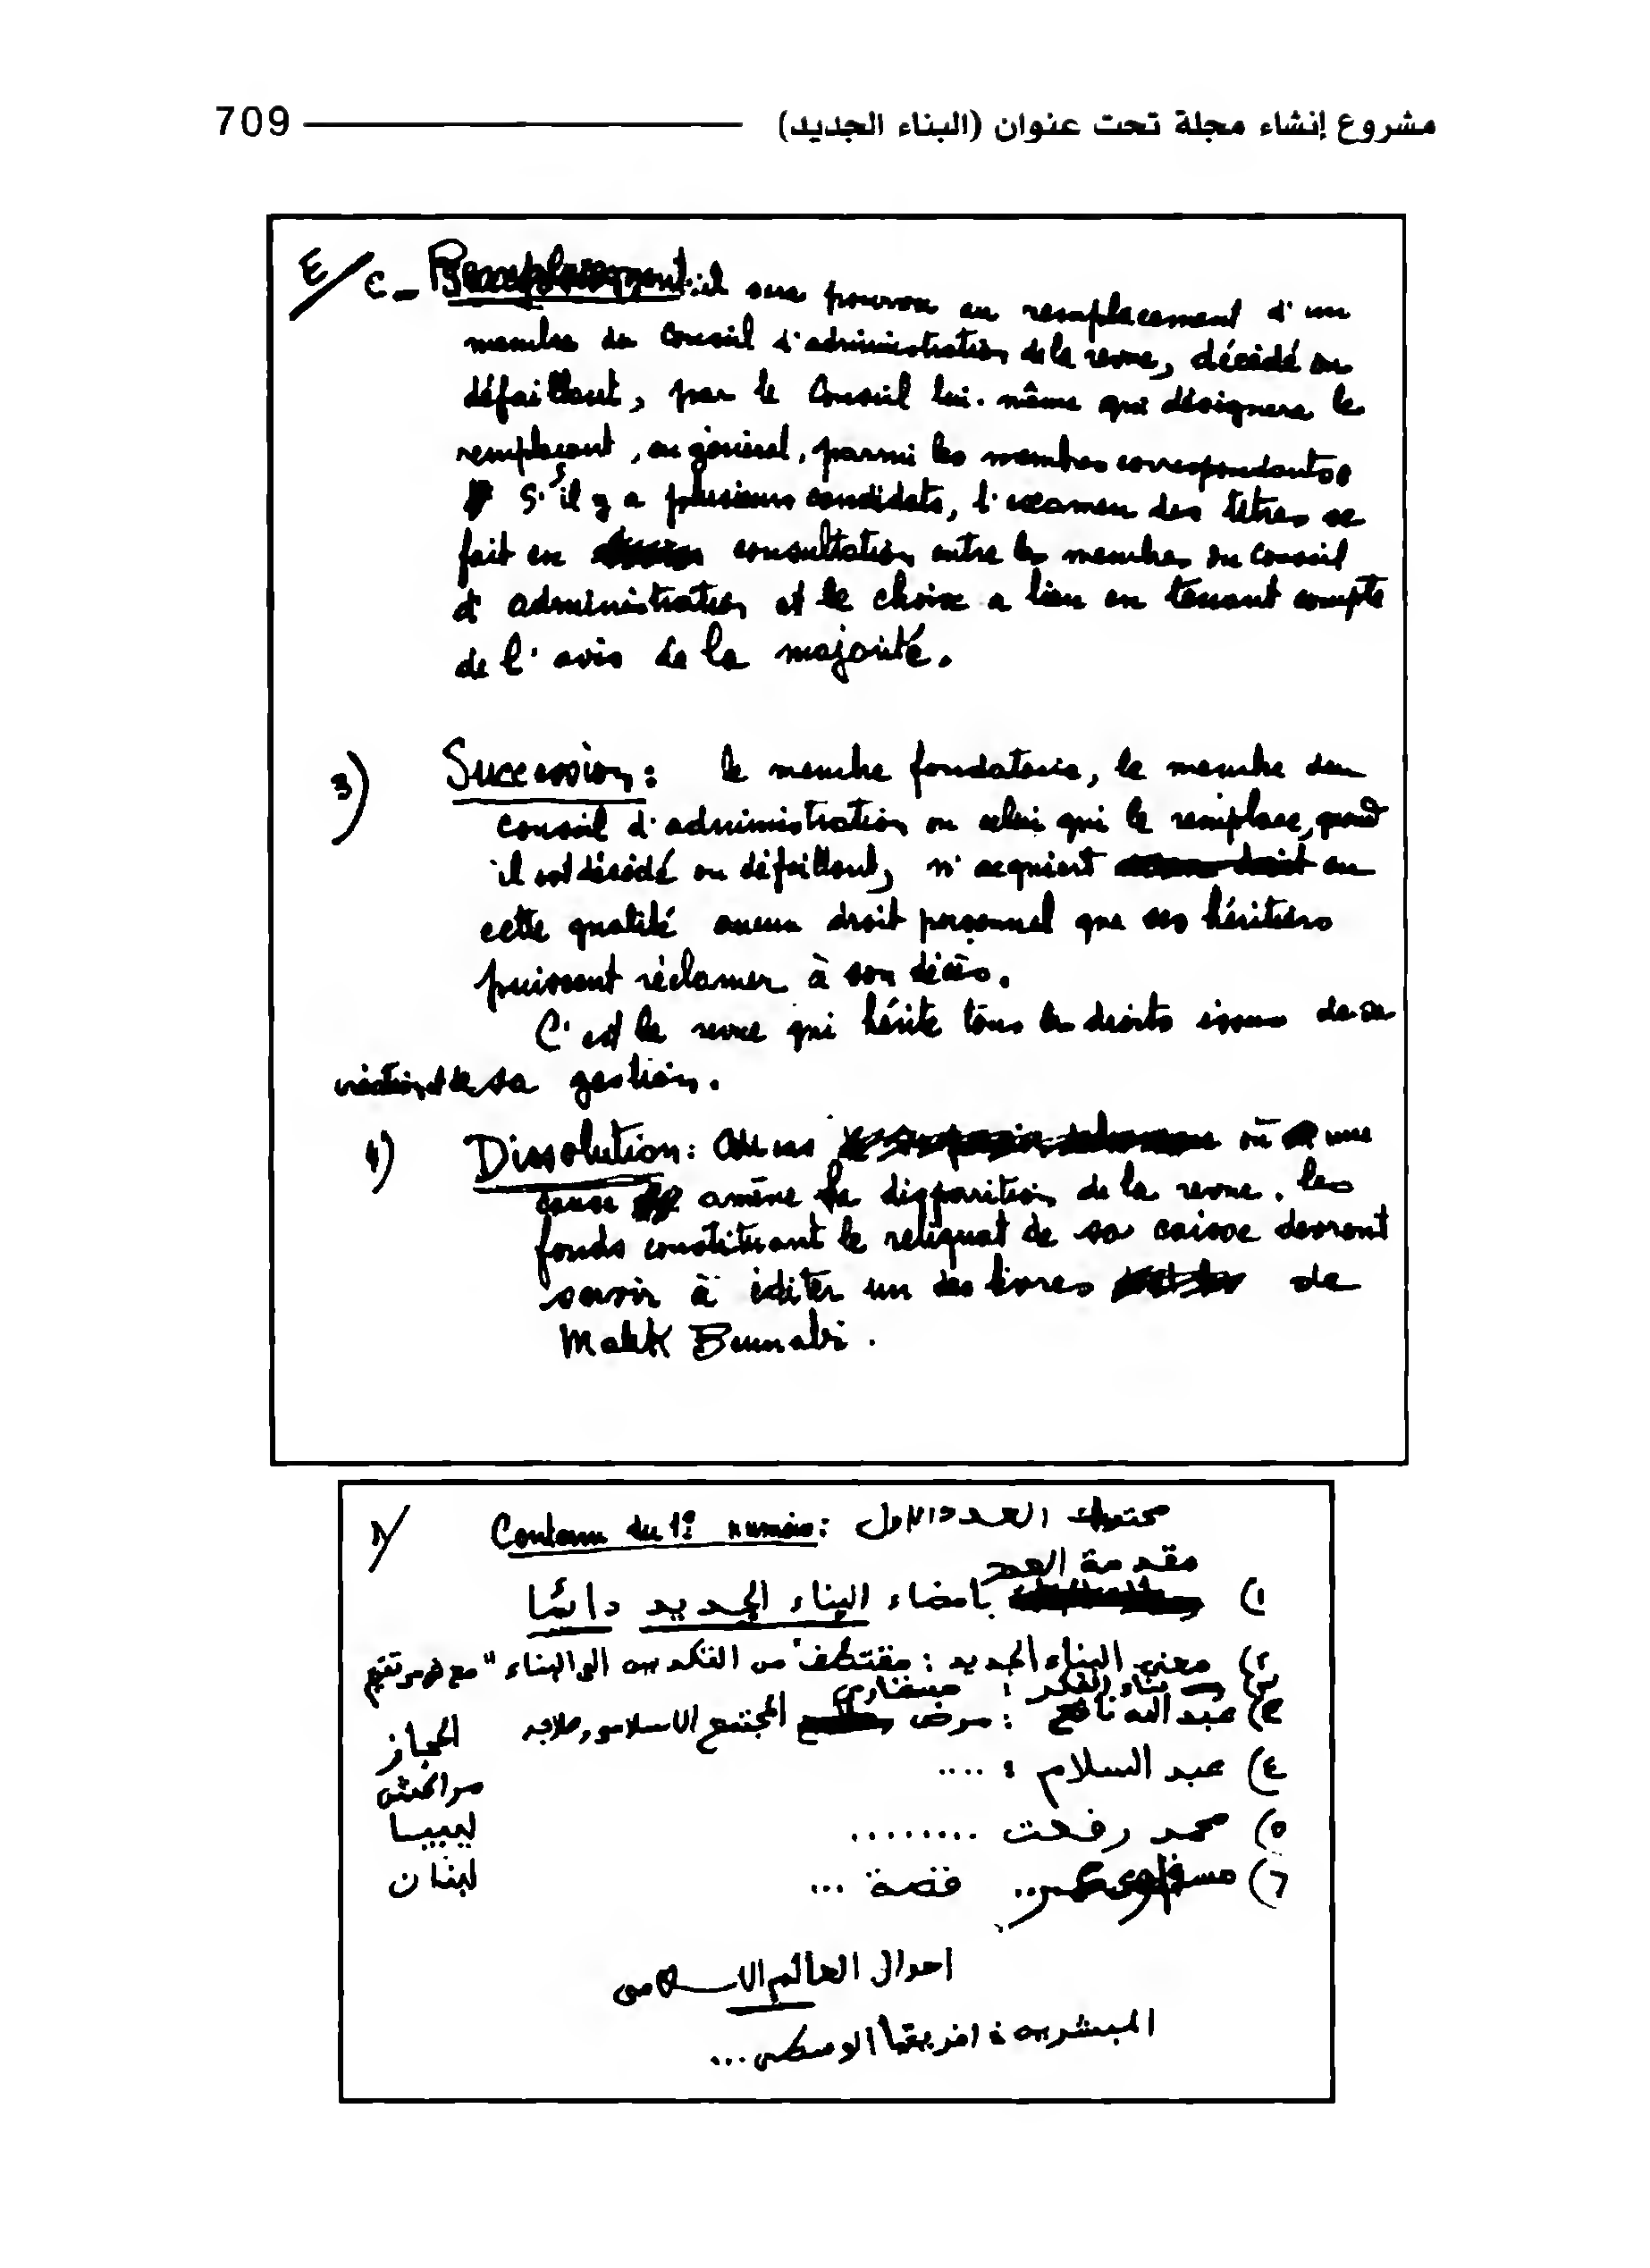 709 مشروع إنشاء مجلة تحت عنوان (البناء الجديد)
E/ c - Remplacement : il sera pourvu au remplacement d'un
membre du Conseil d'administration de la revue, décédé ou
défaillant, par le Conseil lui-même qui désignera le
remplaçant, en général, parmi les membres correspondants.
S'il y a plusieurs candidats, l'examen des titres se
fait en consultation entre les membres du Conseil
d'administration et le choix a lieu en tenant compte
de l'avis de la majorité.
3) Succession : le membre fondateur, le membre du
conseil d'administration ou celui qui le remplace, quand
il est décédé ou défaillant, n'acquiert en
cette qualité aucun droit personnel que ses héritiers
puissent réclamer à son décès.
C'est la revue qui hérite tous les droits issus de sa
création et de sa gestion.
4) Dissolution : Au cas où une
cause amène la disparition de la revue. les
fonds constituant le reliquat de sa caisse devront
servir à éditer un des livres de
Malek Bennabi.
1/ Contenu du 1er numéro : محتويات العدد الاول
مقدمة العدد
١) بامضاء البناء الجديد دائما
٢) معنى البناء الجديد : مقتطف من "الفكر الى البناء" مع
٣) بناء الفكر : مسقاوي
٣) عبد الله نافع : مرض المجتمع الاسلامي وعلاجه الحجاز
٤) عبد السلام : .... مراكش
٥) محمد رفعت ........ ليبيا
٦) مسقاوي عمر .. قصة ... لبنان
احوال العالم الاسلامى
المبشرين في افريقيا الوسطى...